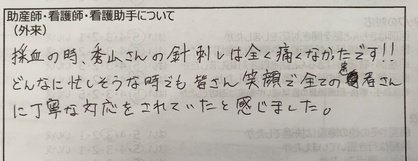 助産師・看護師・看護助手について
(外来)
採血の時、香山さんの針刺しは全く痛くなかたです!!
どんなに忙しそうな時でも皆さん笑顔で全ての患者さん
に丁寧な対応をされていたと感じました。